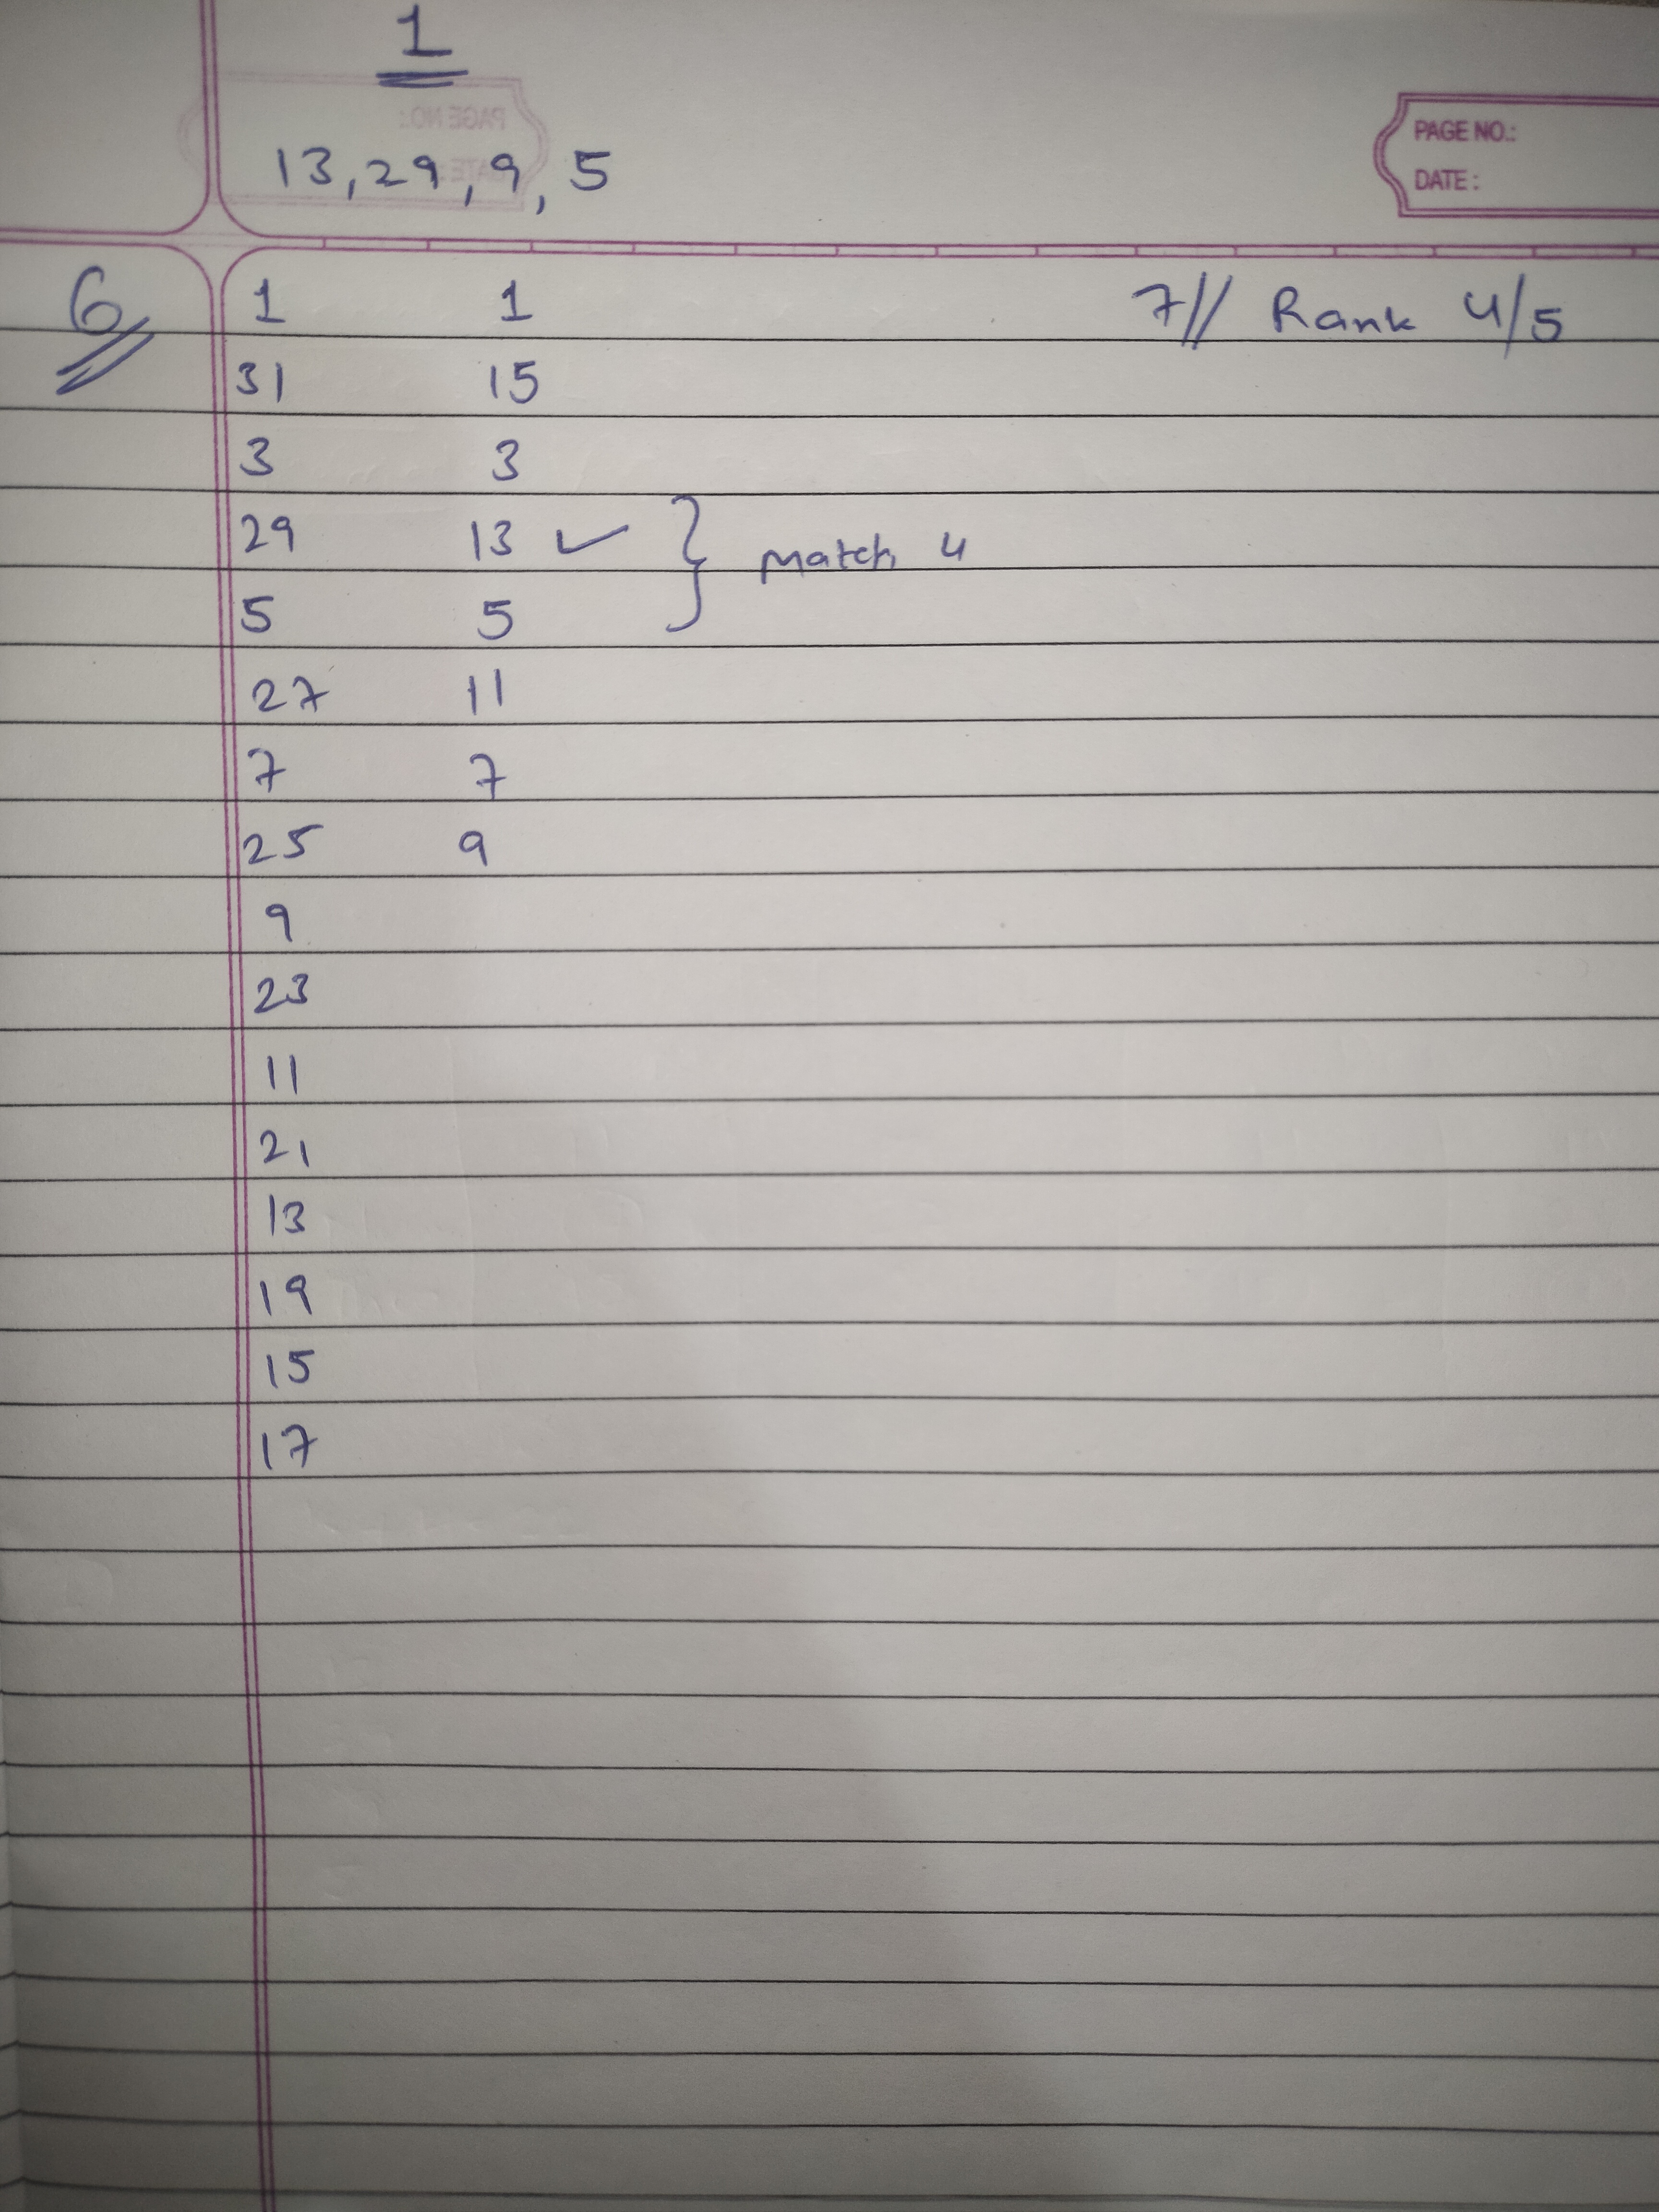 1
PAGE NO.:
13, 29, 9, 5
DATE:
6 1 1 7// Rank 4/5
31 15
3 3
29 13 ✓ } match 4
5 5
27 11
7 7
25 9
9
23
11
21
13
19
15
17